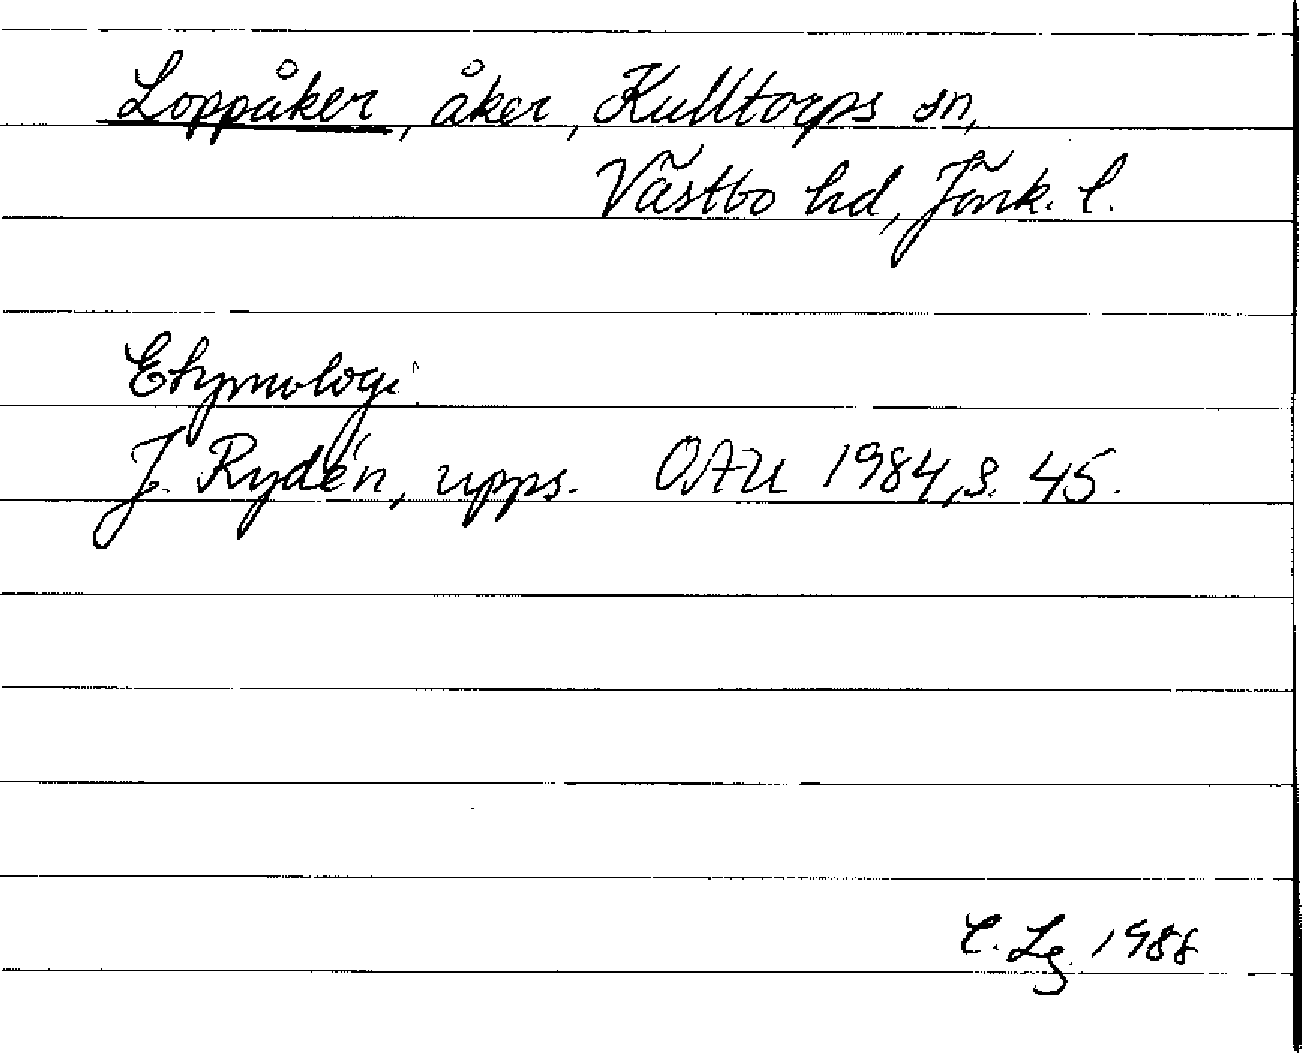 Loppåker, åker, Kulltorps sn,
Västbo hd, Jönk. l.
Etymologi:
J. Rydén, upps. OAU 1984, s. 45.
C. Lg 1988